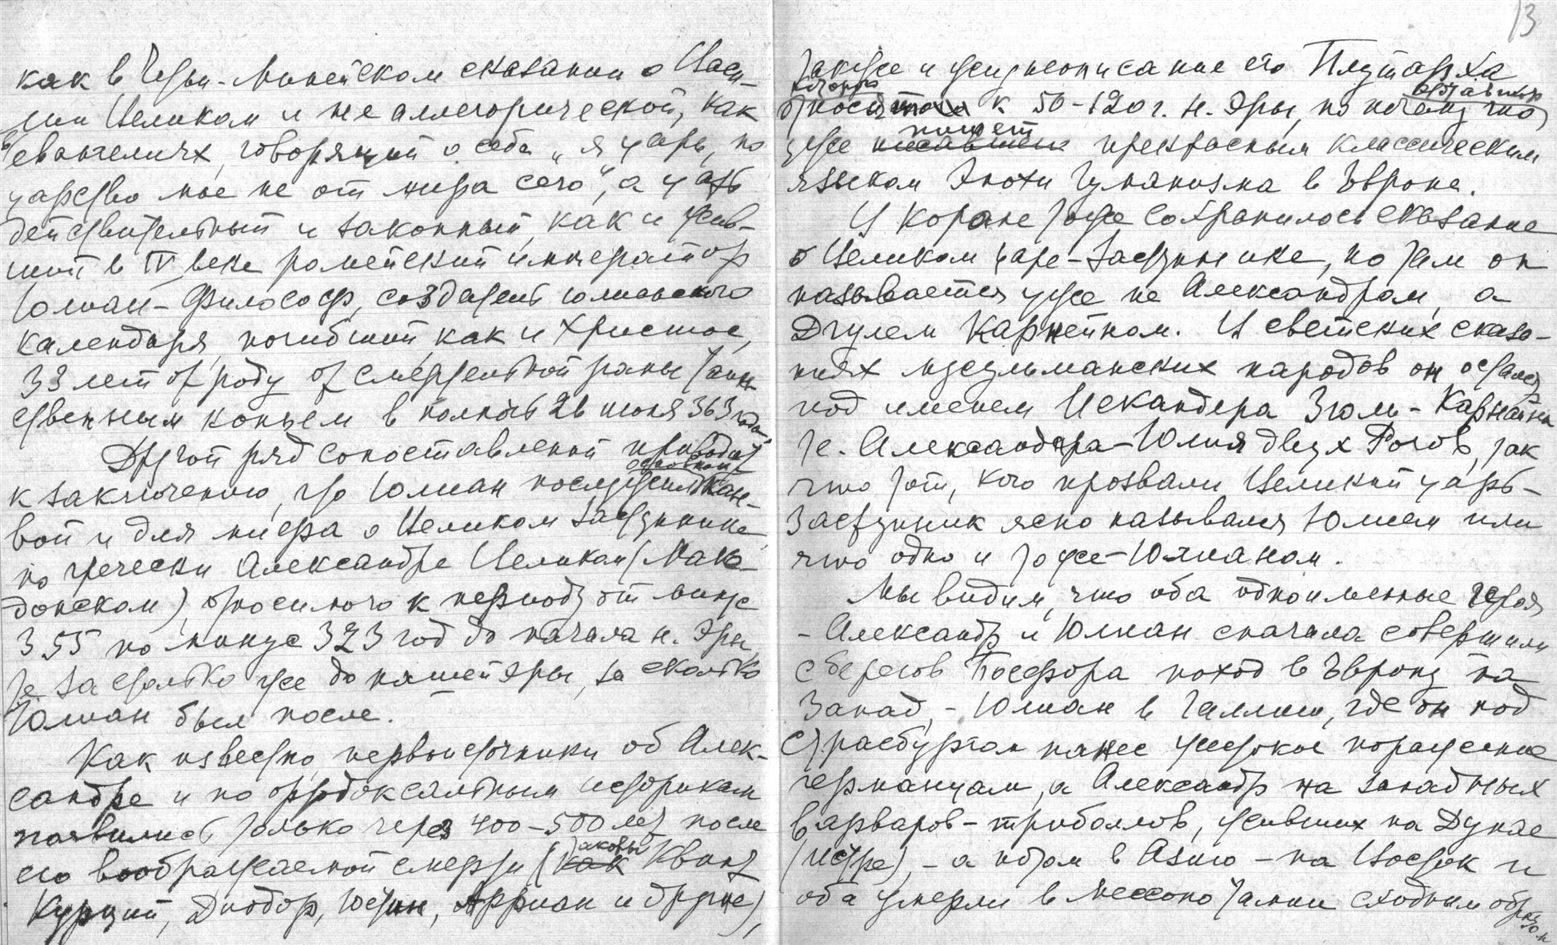 как в Четьи-Минейском сказании о Васи-
лии Великом и не аллегорической, как
в евангелиях, говорящий о себе „я царь, но
царство мое не от мира сего“, а царь
действительный и законный, как и жив-
ший в IV веке ромейский император
Юлиан-Философ, создатель юлианского
календаря, погибший, как и Христос,
33 лет от роду от смертельной раны таин-
ственным копьем в полночь 26 июня 363 года.
Другой ряд сопоставлений приводит
к заключению, что Юлиан послужил основной кан-
вой и для мифа о Великом Заступнике,
по гречески Александре Великом (Маке-
донском), относимого к периоду от минус
355 по минус 323 год до начала н. эры,
т.е. за столько же до нашей эры, за сколько
Юлиан был после.
Как известно, первоисточники об Алек-
сандре и по ортодоксальным историкам
появились только через 400-500 лет после
его воображаемой смерти (как таковы Квинт
Курций, Диодор, Юстин, Арриан и другие),
13
также и жизнеописание его Плутарха
которого относят к 50-120 г. н. эры, но почему то
уже пишет прекрасным классическим
языком эпохи гуманизма в Европе.
В Коране тоже сохранилось сказание
о Великом царе-заступнике, но там он
называется уже не Александром, а
Дгулем Карнейном. В светских сказа-
ниях мусульманских народов он остался
под именем Искандера Зюль-Карнайна
т.е. Александра-Юлия двух Рогов, так
что тот, кого прозвали Великий царь-
Заступник ясно назывался Юлием или
что одно и то же-Юлианом.
Мы видим, что оба одноименные героя
-Александр и Юлиан сначала совершили
с берегов Босфора поход в Европу на
Запад, - Юлиан в Галлию, где он под
Страсбургом нанес жестокое поражение
германцам, а Александр на западных
варваров-трибаллов, живших на Дунае
(Истре), - а потом в Азию - на Восток и
оба умерли в Мессопотамии сходным образом.